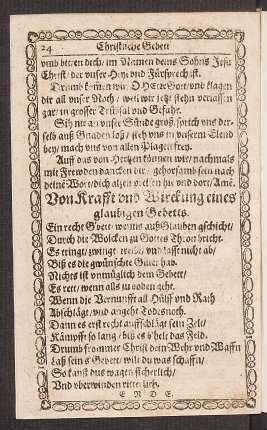 24 Christliche Gebett
vmb bitten dich/ im Namen deins Sohns Jesu
Christ/ der vnser Heyl vnd Fürsprech ist.
Drumb kommen wir O HErre Gott/ vnd klagen
dir all vnser Noth/ weil wir jetzt stehn verlassen
gar/ in grosser Trübsal vnd Gefahr.
Sih nit an vnser Sünde groß/ sprich vns der-
selb auß Gnaden loß/ steh vns in vnserm Elend
bey/ mach vns von allen Plagen frey.
Auff das von Hertzen können wir/ nachmals
mit Frewden dancken dir/ gehorsamb sein nach
deinē Wort/ dich alzeit preisen hie vnd dort/ Amē.
Von Krafft vnd Wirckung eines
glaubigen Gebetts.
Ein recht Gebett/ wenns auß Glauben gschicht/
Durch die Wolcken zu Gottes Thron bricht.
Es ringt/ zwingt vnd lasst nicht ab/
Biß es die gewünschte Güter hab.
Nichts ist vnmüglich dem Gebett/
Es rett/ wenn alls zu boden geht.
Wenn die Vernunfft all Hülff vnd Rath
Abschlägt/ vnd angeht Todesnoth.
Dann es erst recht auffschlägt sein Zelt/
Kämpfft so lang/ biß es b'helt das Feld.
Drumb frommer Christ dein Wehr vnd Waffn
Laß sein s Gebett/ wilt du was schaffn/
So kanst dus wagen sicherlich/
Vnd vberwinden
E N D E.